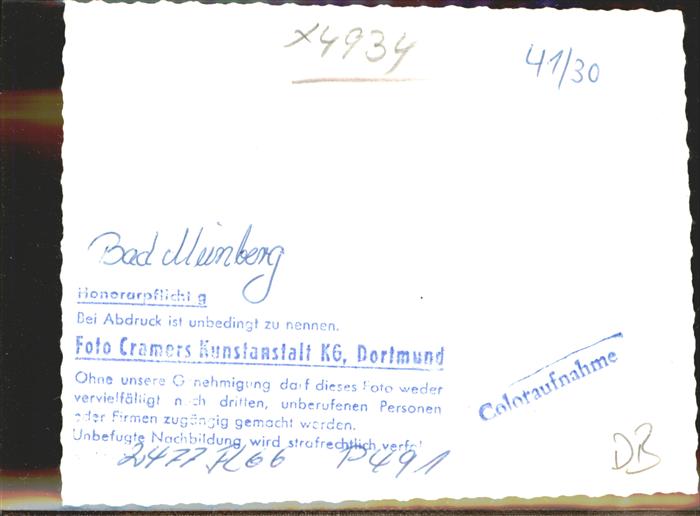 x4934
41/30
Bad Meinberg
Honorarpflichtig
Bei Abdruck ist unbedingt zu nennen.
Foto Cramers Kunstanstalt KG, Dortmund
Ohne unsere G nehmigung darf dieses Foto weder
vervielfältigt noch dritten, unberufenen Personen
oder Firmen zugängig gemacht werden.
Unbefugte Nachbildung wird strafrechtlich verfol
Coloraufnahme
P491
DB